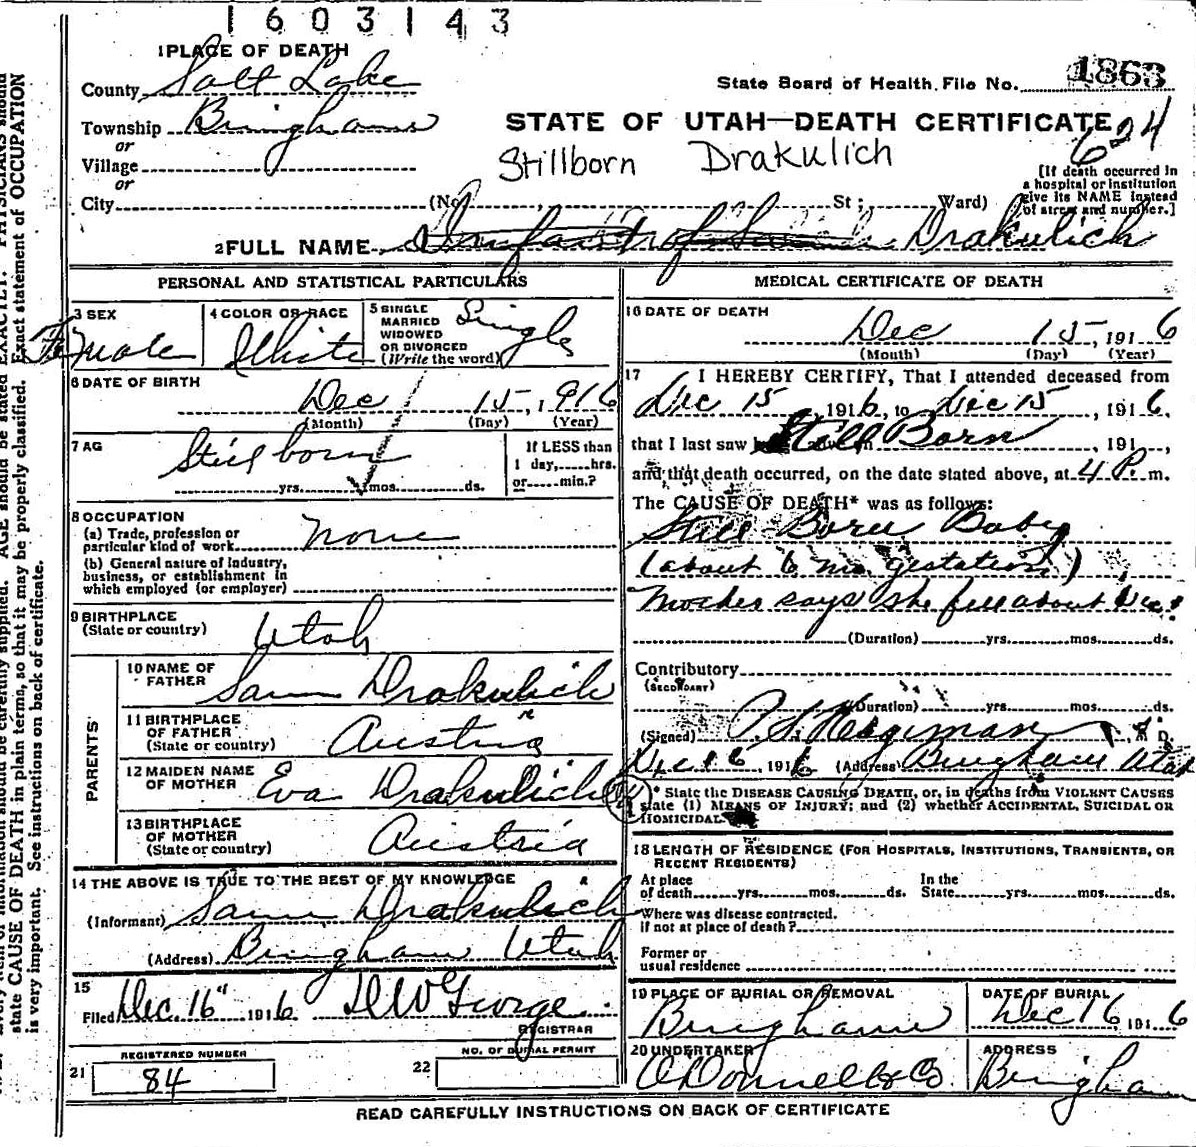 1603143
1 PLACE OF DEATH
County Salt Lake
State Board of Health File No. 1863
Township Bingham
STATE OF UTAH—DEATH CERTIFICATE
624
or
Village
Stillborn Drakulich
or
City (No. St; Ward)
[If death occurred in
a hospital or institution
give its NAME instead
of street and number.]
2 FULL NAME Infant of Drakulich
PERSONAL AND STATISTICAL PARTICULARS
3 SEX
Female
4 COLOR OR RACE
White
5 SINGLE
MARRIED
WIDOWED
OR DIVORCED
(Write the word)
Single
6 DATE OF BIRTH
Dec 15, 1916
(Month) (Day) (Year)
7 AG
Stillborn
yrs. mos. ds.
If LESS than
1 day,.....hrs.
or.....min.?
8 OCCUPATION
(a) Trade, profession or
particular kind of work none
(b) General nature of industry,
business, or establishment in
which employed (or employer)
9 BIRTHPLACE
(State or country) Utah
PARENTS
10 NAME OF
FATHER Sam Drakulich
11 BIRTHPLACE
OF FATHER
(State or country) Austria
12 MAIDEN NAME
OF MOTHER Eva Drakulich
13 BIRTHPLACE
OF MOTHER
(State or country) Austria
14 THE ABOVE IS TRUE TO THE BEST OF MY KNOWLEDGE
(Informant) Sam Drakulich
(Address) Bingham Utah
15
Filed Dec 16" 1916 REGISTRAR
REGISTERED NUMBER
21 84
NO. OF BURIAL PERMIT
22
MEDICAL CERTIFICATE OF DEATH
16 DATE OF DEATH
Dec 15, 1916
(Month) (Day) (Year)
17 I HEREBY CERTIFY, That I attended deceased from
Dec 15, 1916, to Dec 15, 1916,
that I last saw h Still Born, 191
and that death occurred, on the date stated above, at 4 P. m.
The CAUSE OF DEATH* was as follows:
Still Born Baby
(about 6 mo gestation)
Mother says she fell about Dec 1
(Duration) yrs. mos. ds.
Contributory
(SECONDARY)
(Duration) yrs. mos. ds.
(Signed) M. D.
1916 (Address) Bingham Utah
* State the DISEASE CAUSING DEATH, or, in deaths from VIOLENT CAUSES
state (1) MEANS OF INJURY; and (2) whether ACCIDENTAL, SUICIDAL OR
HOMICIDAL
18 LENGTH OF RESIDENCE (FOR HOSPITALS, INSTITUTIONS, TRANSIENTS, OR
RECENT RESIDENTS)
At place
of death yrs. mos. ds.
In the
State yrs. mos. ds.
Where was disease contracted,
if not at place of death?
Former or
usual residence
19 PLACE OF BURIAL OR REMOVAL
Bingham
DATE OF BURIAL
Dec 16 1916
20 UNDERTAKER
O'Donnell & Co
ADDRESS
Bingham
READ CAREFULLY INSTRUCTIONS ON BACK OF CERTIFICATE
AGE should be stated EXACTLY. PHYSICIANS should
state CAUSE OF DEATH in plain terms, so that it may be properly classified. Exact statement of OCCUPATION
is very important. See instructions on back of certificate.